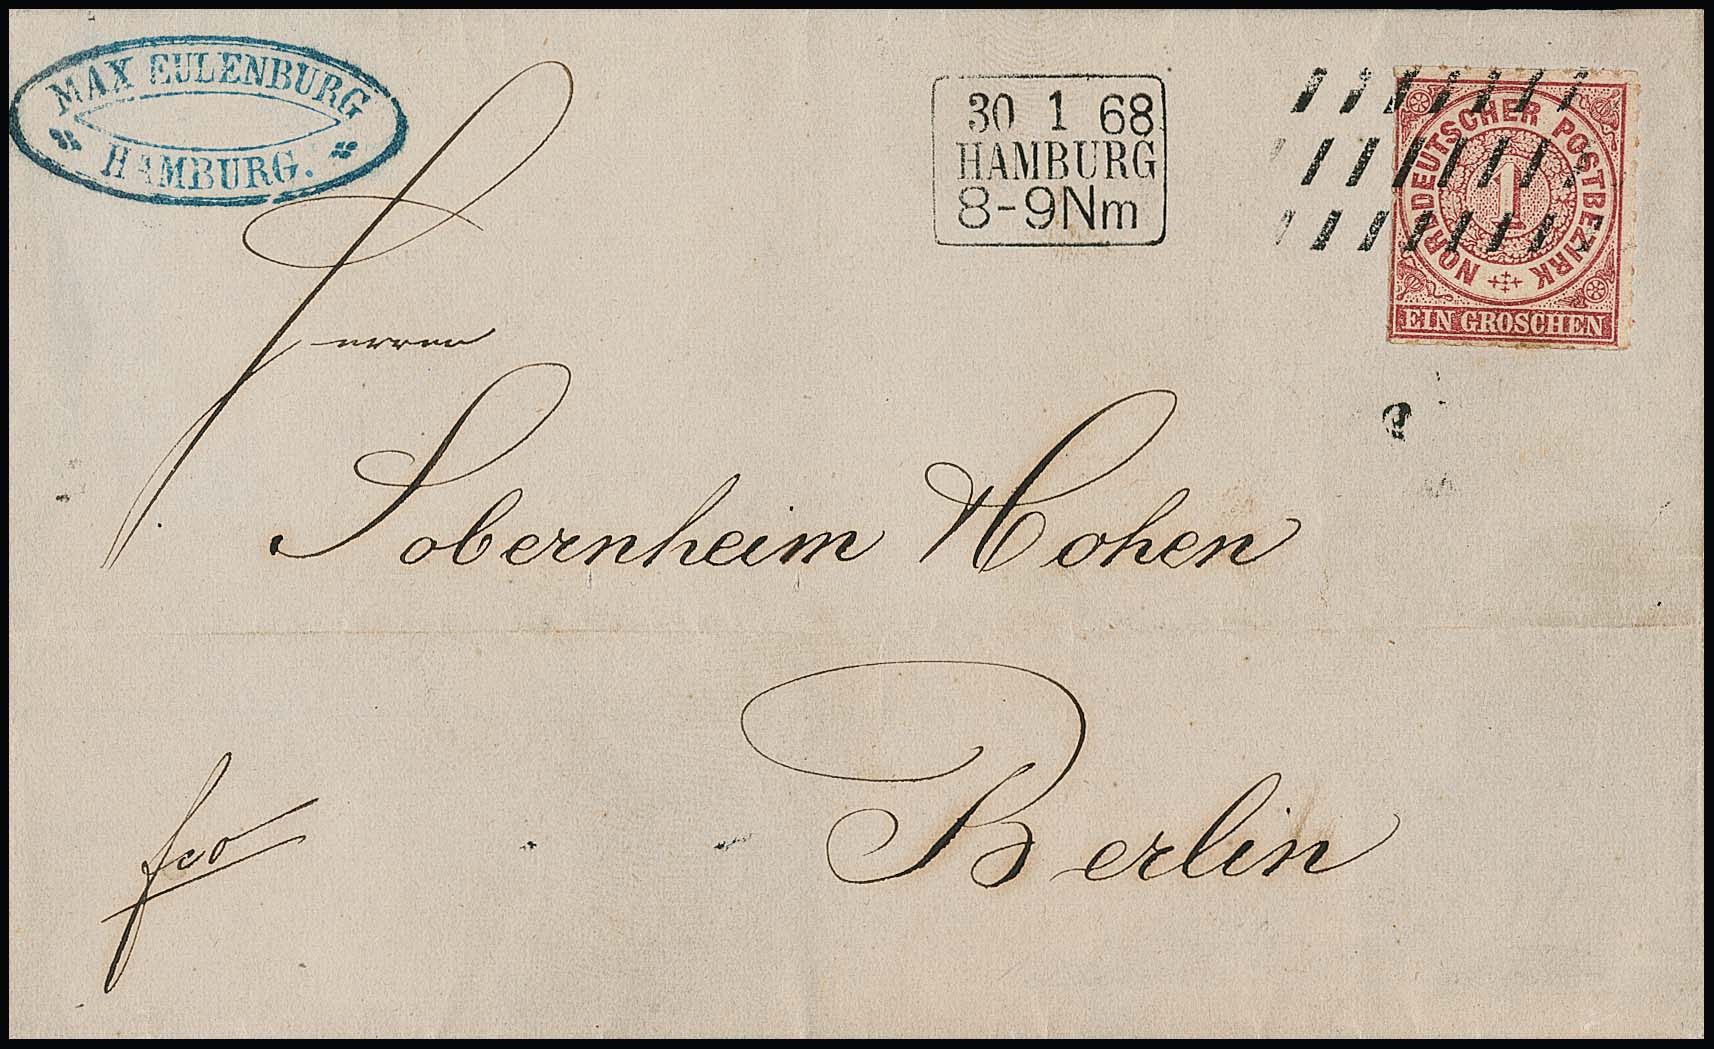 MAX EULENBURG
HAMBURG.
30 1 68
HAMBURG
8-9Nm
NORDDEUTSCHER POSTBEZIRK
1
EIN GROSCHEN
Herren
Sobernheim & Cohen
Berlin
fco